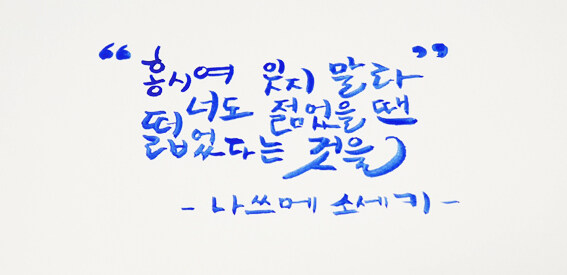 “홍시여 잊지 말라”
너도 젊었을 땐
떫었다는 것을
- 나쓰메 소세키 -